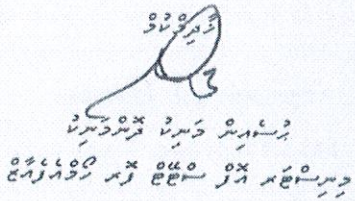 ޚާދިމްކުމް
ޙުސެއިން މަނިކު ދޮންމަނިކު
މިނިސްޓަރ އޮފް ސްޓޭޓް ފޮރ ހޯމްއެފެއާޒް